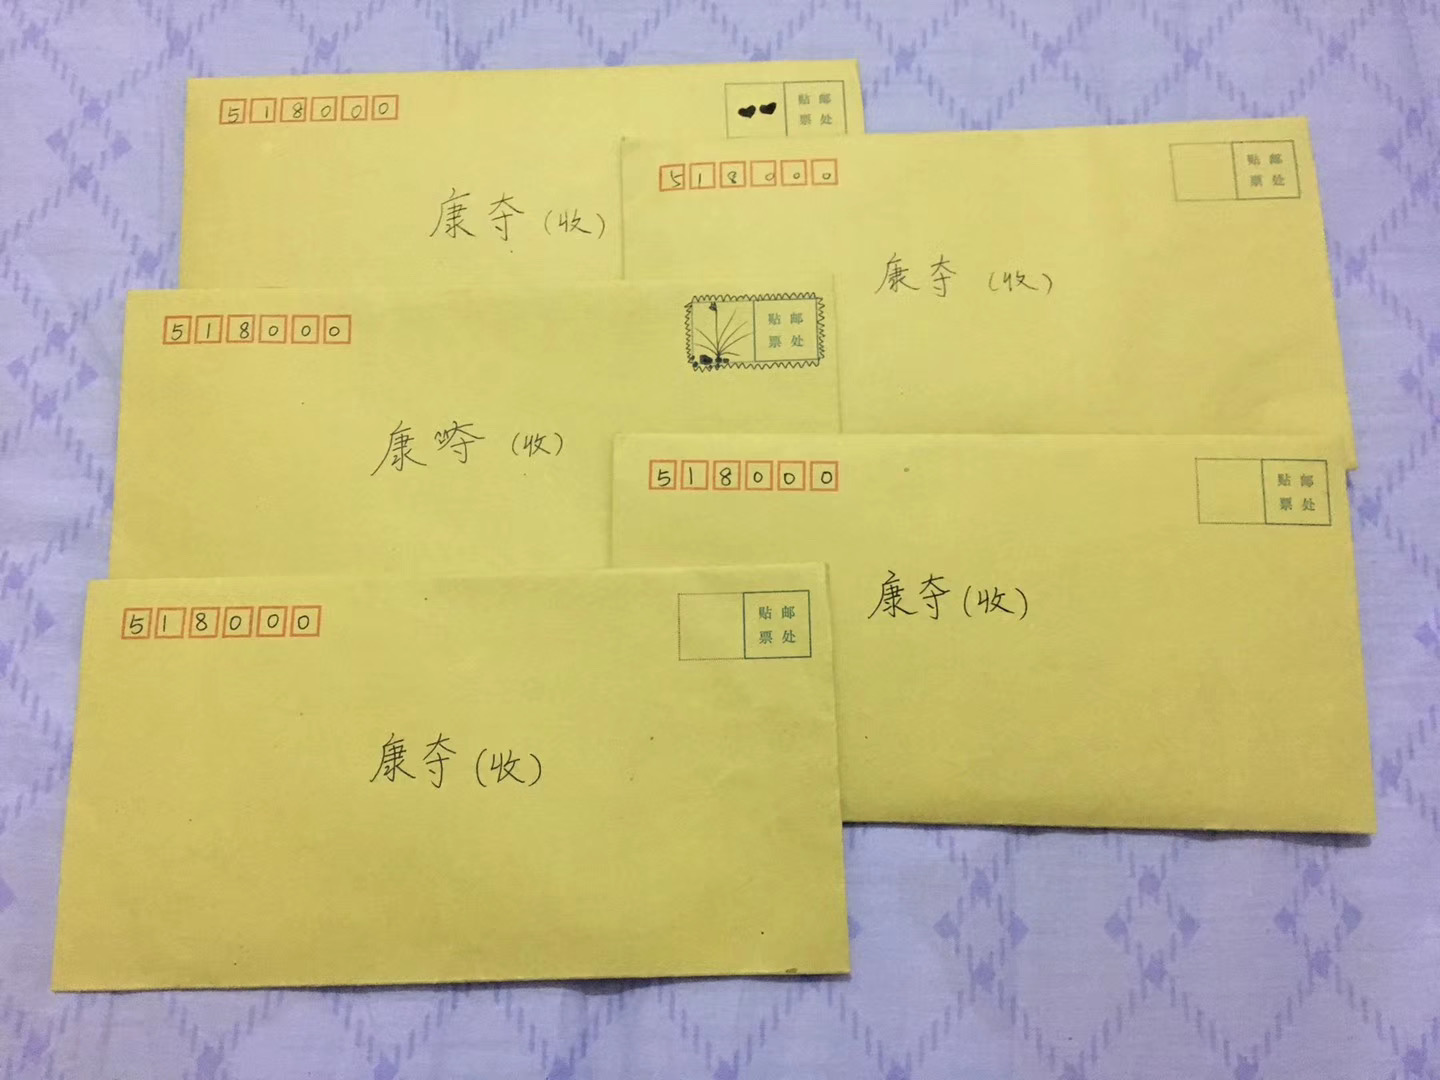 518000
贴邮
票处
康夺（收）
518000
贴邮
票处
康夺（收）
518000
贴邮
票处
康夺（收）
518000
贴邮
票处
康夺（收）
518000
贴邮
票处
康夺（收）